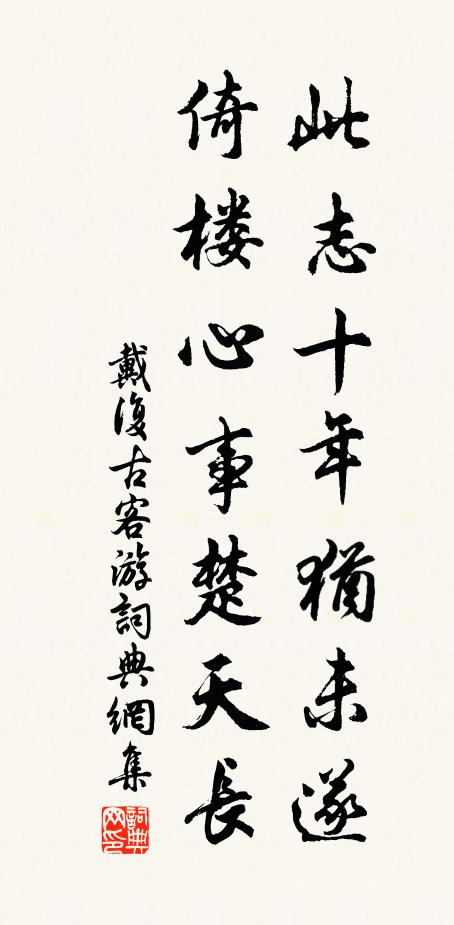 此志十年猶未遂
倚楼心事楚天長
戴復古客游詞典網集
詞典网印